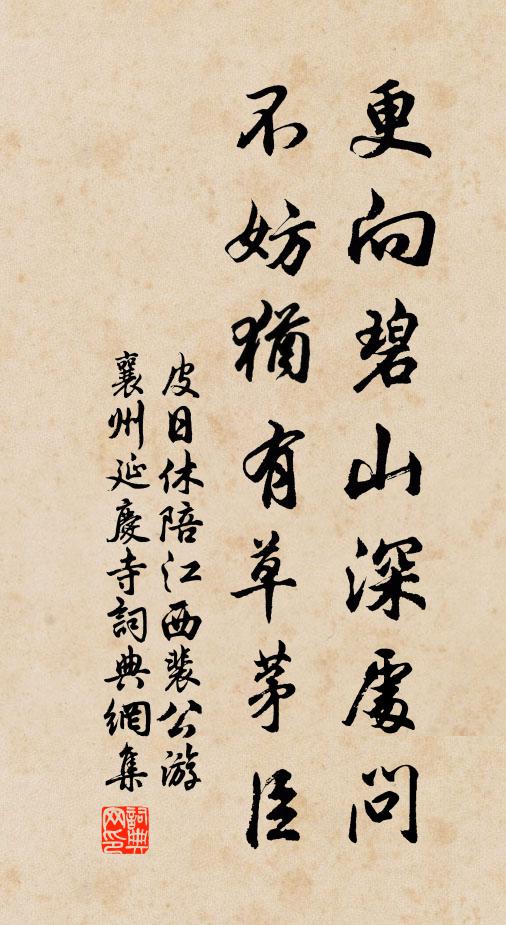 更向碧山深處問
不妨猶有草茅臣
皮日休陪江西裴公游
襄州延慶寺詞典網集
詞典网印